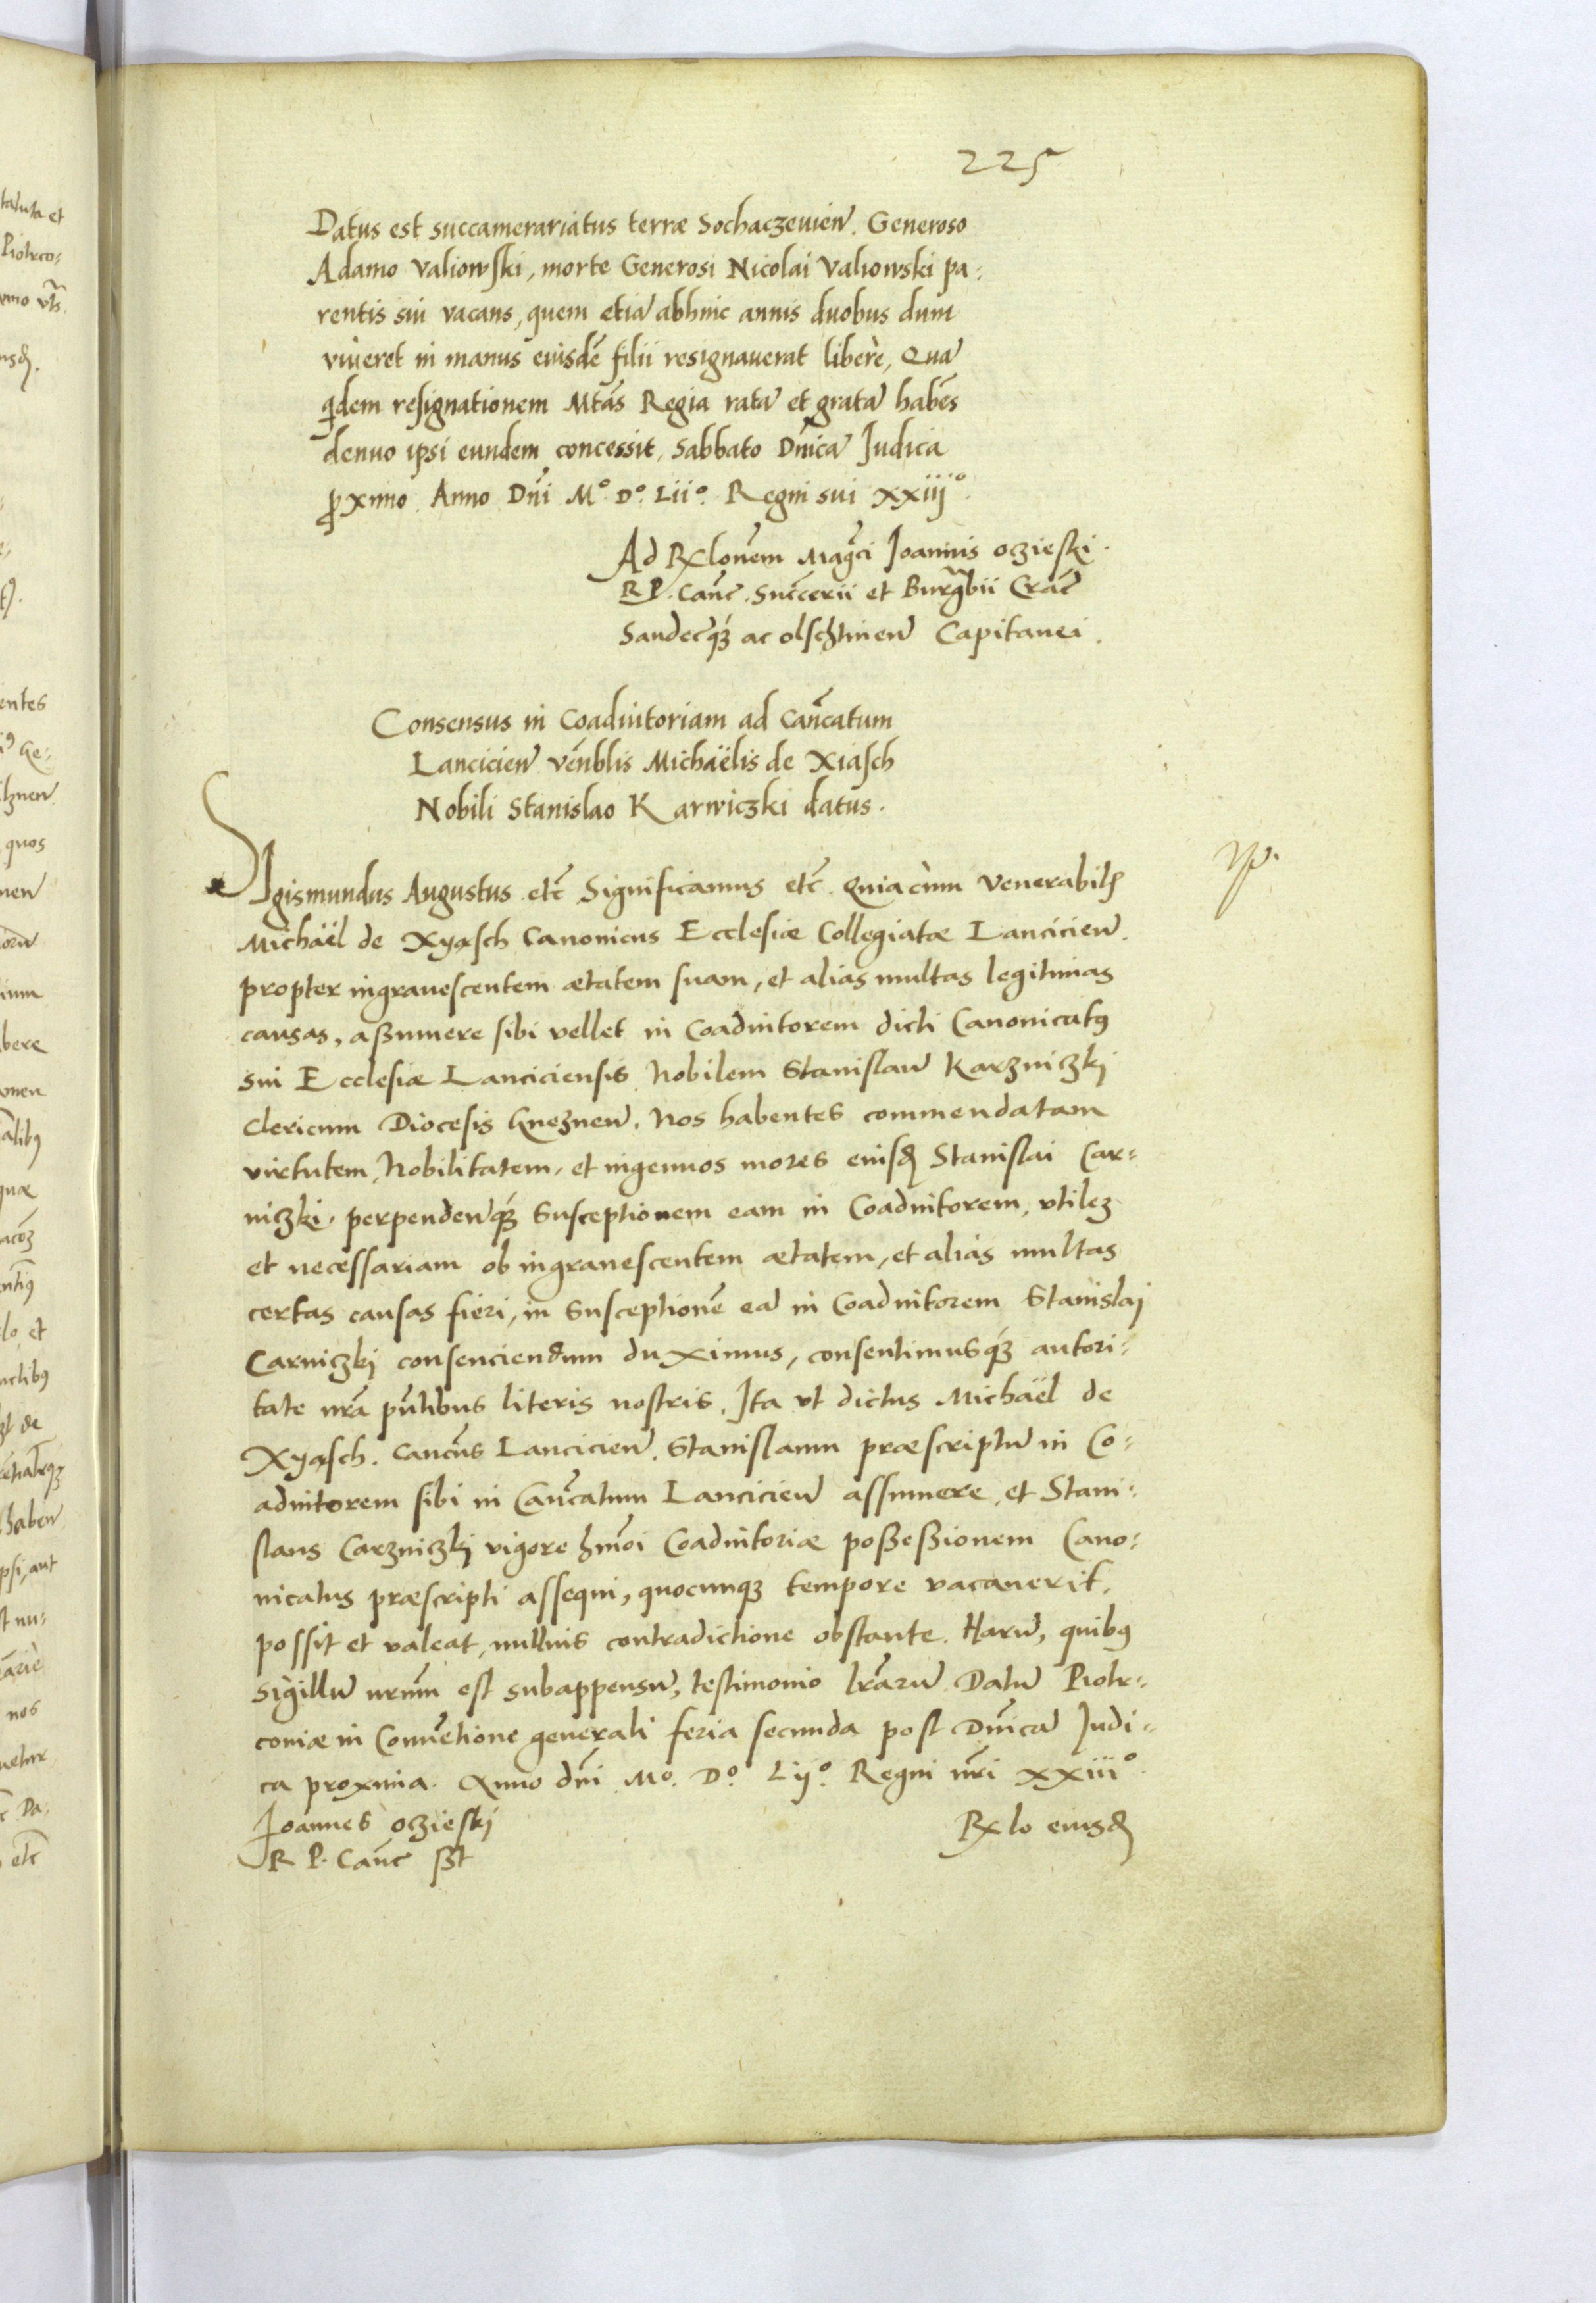 225
Datus est succamerariatus terræ Sochaczeuien̄. Generoso
Adamo Valiowski, morte Generosi Nicolai Valiowski pa:
rentis sui vacans, quem etiā abhinc annis duobus dum
viueret in manus eiusdē filii resignauerat liberè, Quā
qdem resignationem Mtās Regia ratā et gratā habēs
denuo ipsi eundem concessit, Sabbato Dn̄icā Iudica
ꝓximo. Anno Dn̄i M° D° Lii° Regni sui xxiij°
Ad Rx̄lonem Mag̃ci Ioannis oczieski.
R P. Canc̄. Succ̄erii et Burg̃bii Crac̄
Sandec̄qꝫ ac olschtinen̄ Capitanei.
Consensus in Coadiutoriam ad Can̄catum
Lancicien̄ vēnblis Michaëlis de Xiasch
Nobili Stanislao Karwiczki datus.
SIgismundus Augustus etc̄ Significamus etc̄. Quia cùm Venerabilꝭ
Michaël de Xyasch Canonicus Ecclesiæ Collegiatæ Lancicien̄.
propter ingrauescentem ætatem suam, et alias multas legitimas
causas, assumere sibi vellet in Coadiutorem dicti Canonicatꝰ
sui Ecclesiæ Lanciciensis Nobilem Stanislaū Karzniczkj
Clericum Diocesis Gneznen̄. Nos habentes commendatam
virtutem, Nobilitatem, et ingenuos mores eiusđ Stanislai Car:
niczki, perpenden̄qꝫ Susceptionem eam in Coadiutorem, vtileꝫ
et necessariam ob ingrauescentem ætatem, et aliàs multas
certas causas fieri, in Susceptionē eā in Coadiutorem Stanislaj
Carniczkj consenciendum duximus, consentimusqꝫ autori:
tate nr̄a pn̄tibus literis nostris. Ita vt dictus Michaël de
Xyasch. Canc̄us Lancicien̄. Stanislaum præscriptū in Co:
adiutorem sibi in Can̄catum Lancicien̄ assumere, et Stani:
slaus Carzniczkj vigore hm̄oi Coadiutoriæ possessionem Cano:
nicatus præscripti assequi, quocunqꝫ tempore vacauerit,
possit et valeat, nullius contradictione obstante. Harū, quibꝰ
Sigillū nrūm est subappensū, testimonio lr̄arū. Datū Piotr:
coniæ in Conuētione generali feria secunda post Dn̄icā Iudi:
ca proxima. Anno dn̄i M°. D°. Lij°. Regni nr̄i xxiii°.
Ioannes oczieskj
Rx̄lo eiusđ
R P. Canc̄ sst